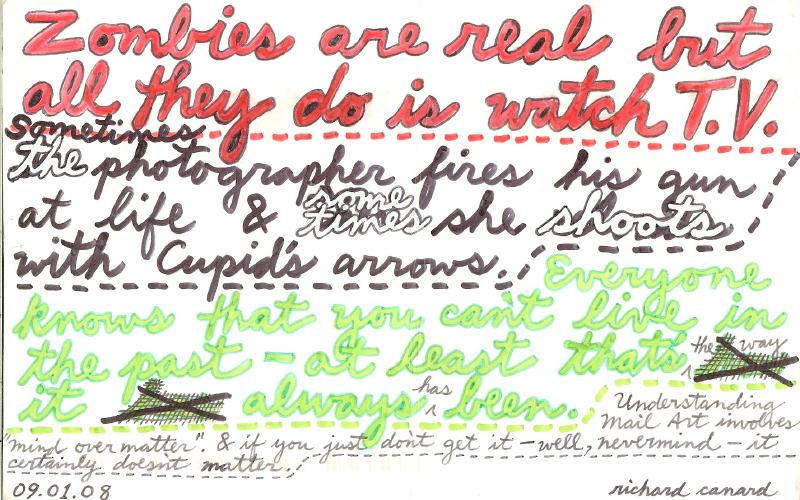 Zombies are real but
all they do is watch T.V.
Sometimes
the photographer fires his gun
at life & some times she shoots
with Cupid's arrows.
Everyone
knows that you can't live in
the past - at least that's the way
it always has been.
Understanding
Mail Art involves
"mind over matter". & if you just don't get it - well, nevermind - it
certainly doesn't matter.
09.01.08
richard canard